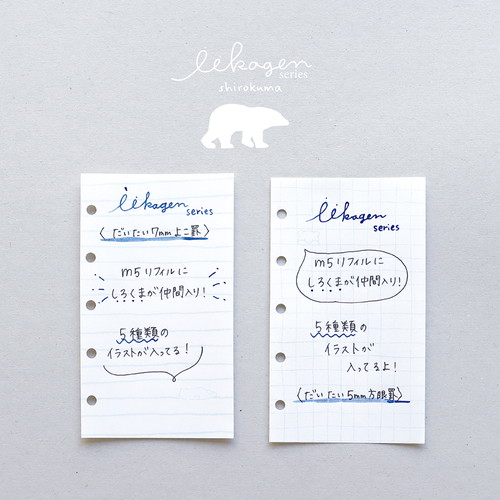 iikagen
series
shirokuma
iikagen
series
〈だいたい7mmよこ罫〉
m5リフィルに
しろくまが仲間入り!
5種類の
イラストが入ってる!
iikagen
series
m5リフィルに
しろくまが仲間入り!
5種類の
イラストが
入ってるよ!
〈だいたい5mm方眼罫〉